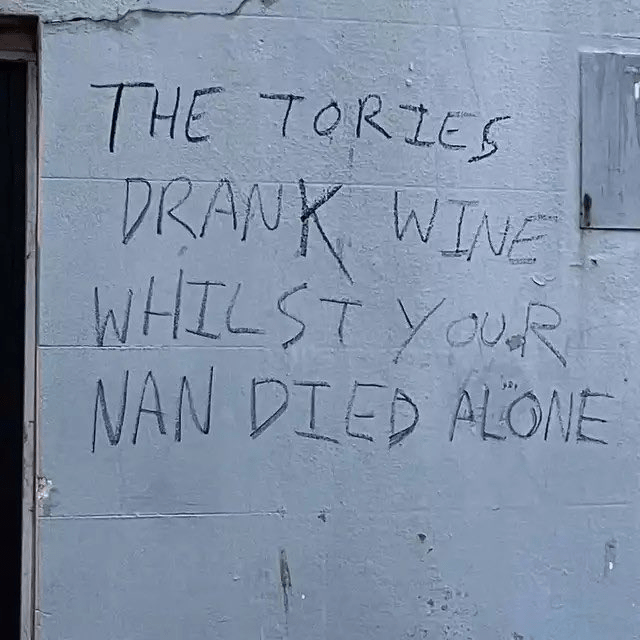 THE TORIES
DRANK WINE
WHILST YOUR
NAN DIED ALONE